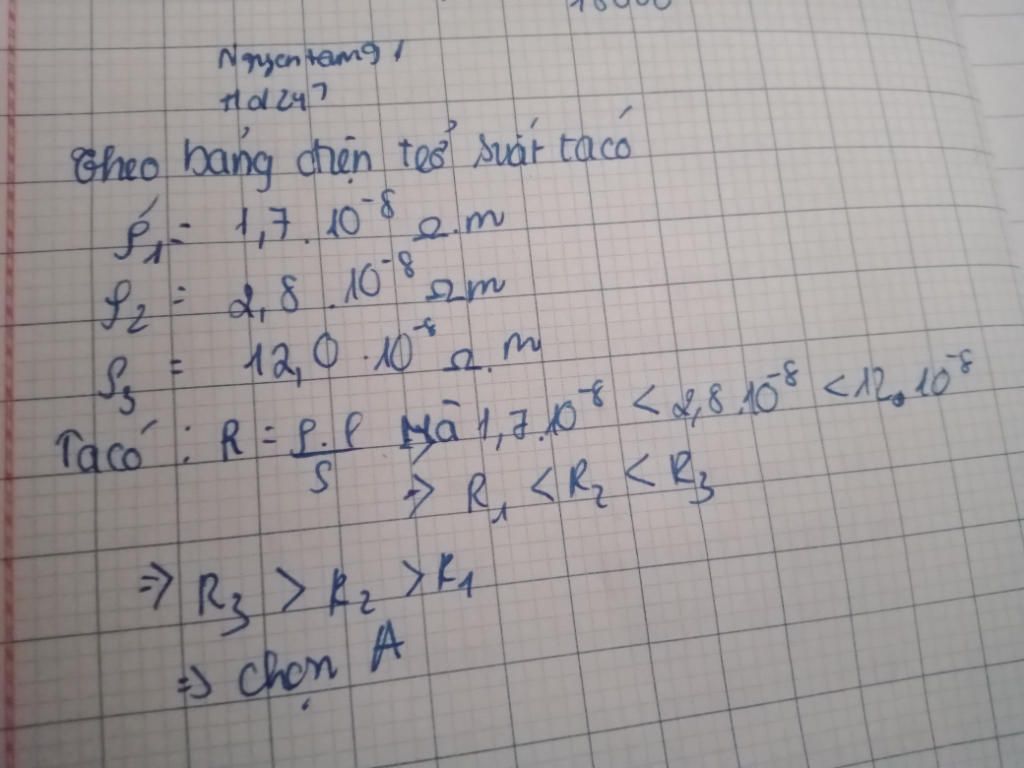 18000
Nguyentamg1
Hd247
Theo bảng điện trở suất ta có
ρ₁ = 1,7.10⁻⁸ Ω.m
ρ₂ = 2,8.10⁻⁸ Ωm
ρ₃ = 12,0.10⁻⁸ Ω.m
Ta có: R = ρ.l/S Mà 1,7.10⁻⁸ < 2,8.10⁻⁸ < 12.10⁻⁸
=> R₁ < R₂ < R₃
=> R₃ > R₂ > R₁
=> chọn A